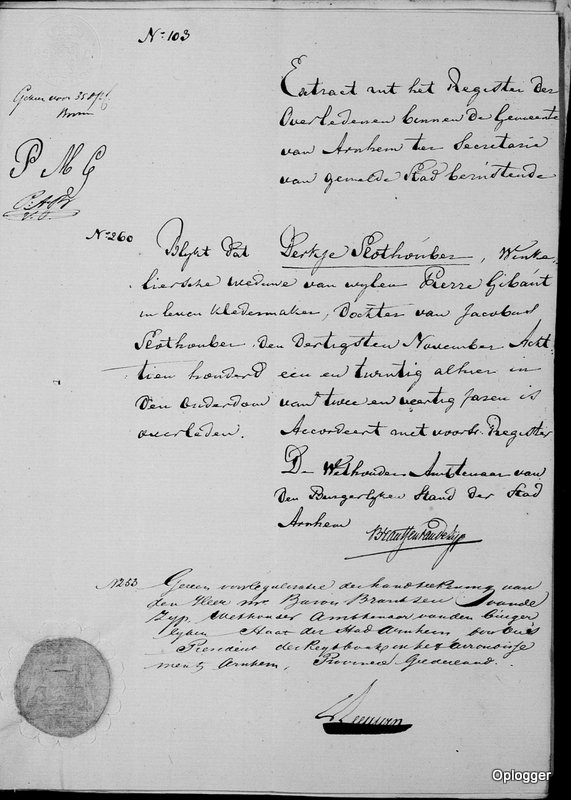 No 103
Extract uit het Register der
Overledenen binnen de Gemeente
van Arnhem ter Secretarie
van gemelde Stad berustende
Gezien voor
P M G
No 260
Blykt dat Derkje Slothouber, Winke
liersche weduwe van wylen Pierre Gibaut
in leven kledermaker, Dochter van Jacobus
Slothouber den dertigsten November Acht
tien honderd een en twintig alhier in
den ouderdom van twee en veertig Jaren is
overleden. Accordeert met voorsr. Register
De Wethouder Amttenaar van
den Burgerlyken Stand der Stad
Arnhem
No 253
Gezien voor legalisatie der handtekening van
den Heer mr. Baron Brantsen van de
Zyp, Wethouder Ambtenaar van den burger
lyken Staat der Stad Arnhem door Ons
President der Regtbank in het arrondisse
ment Arnhem, Provincie Gelderland.
Oplogger